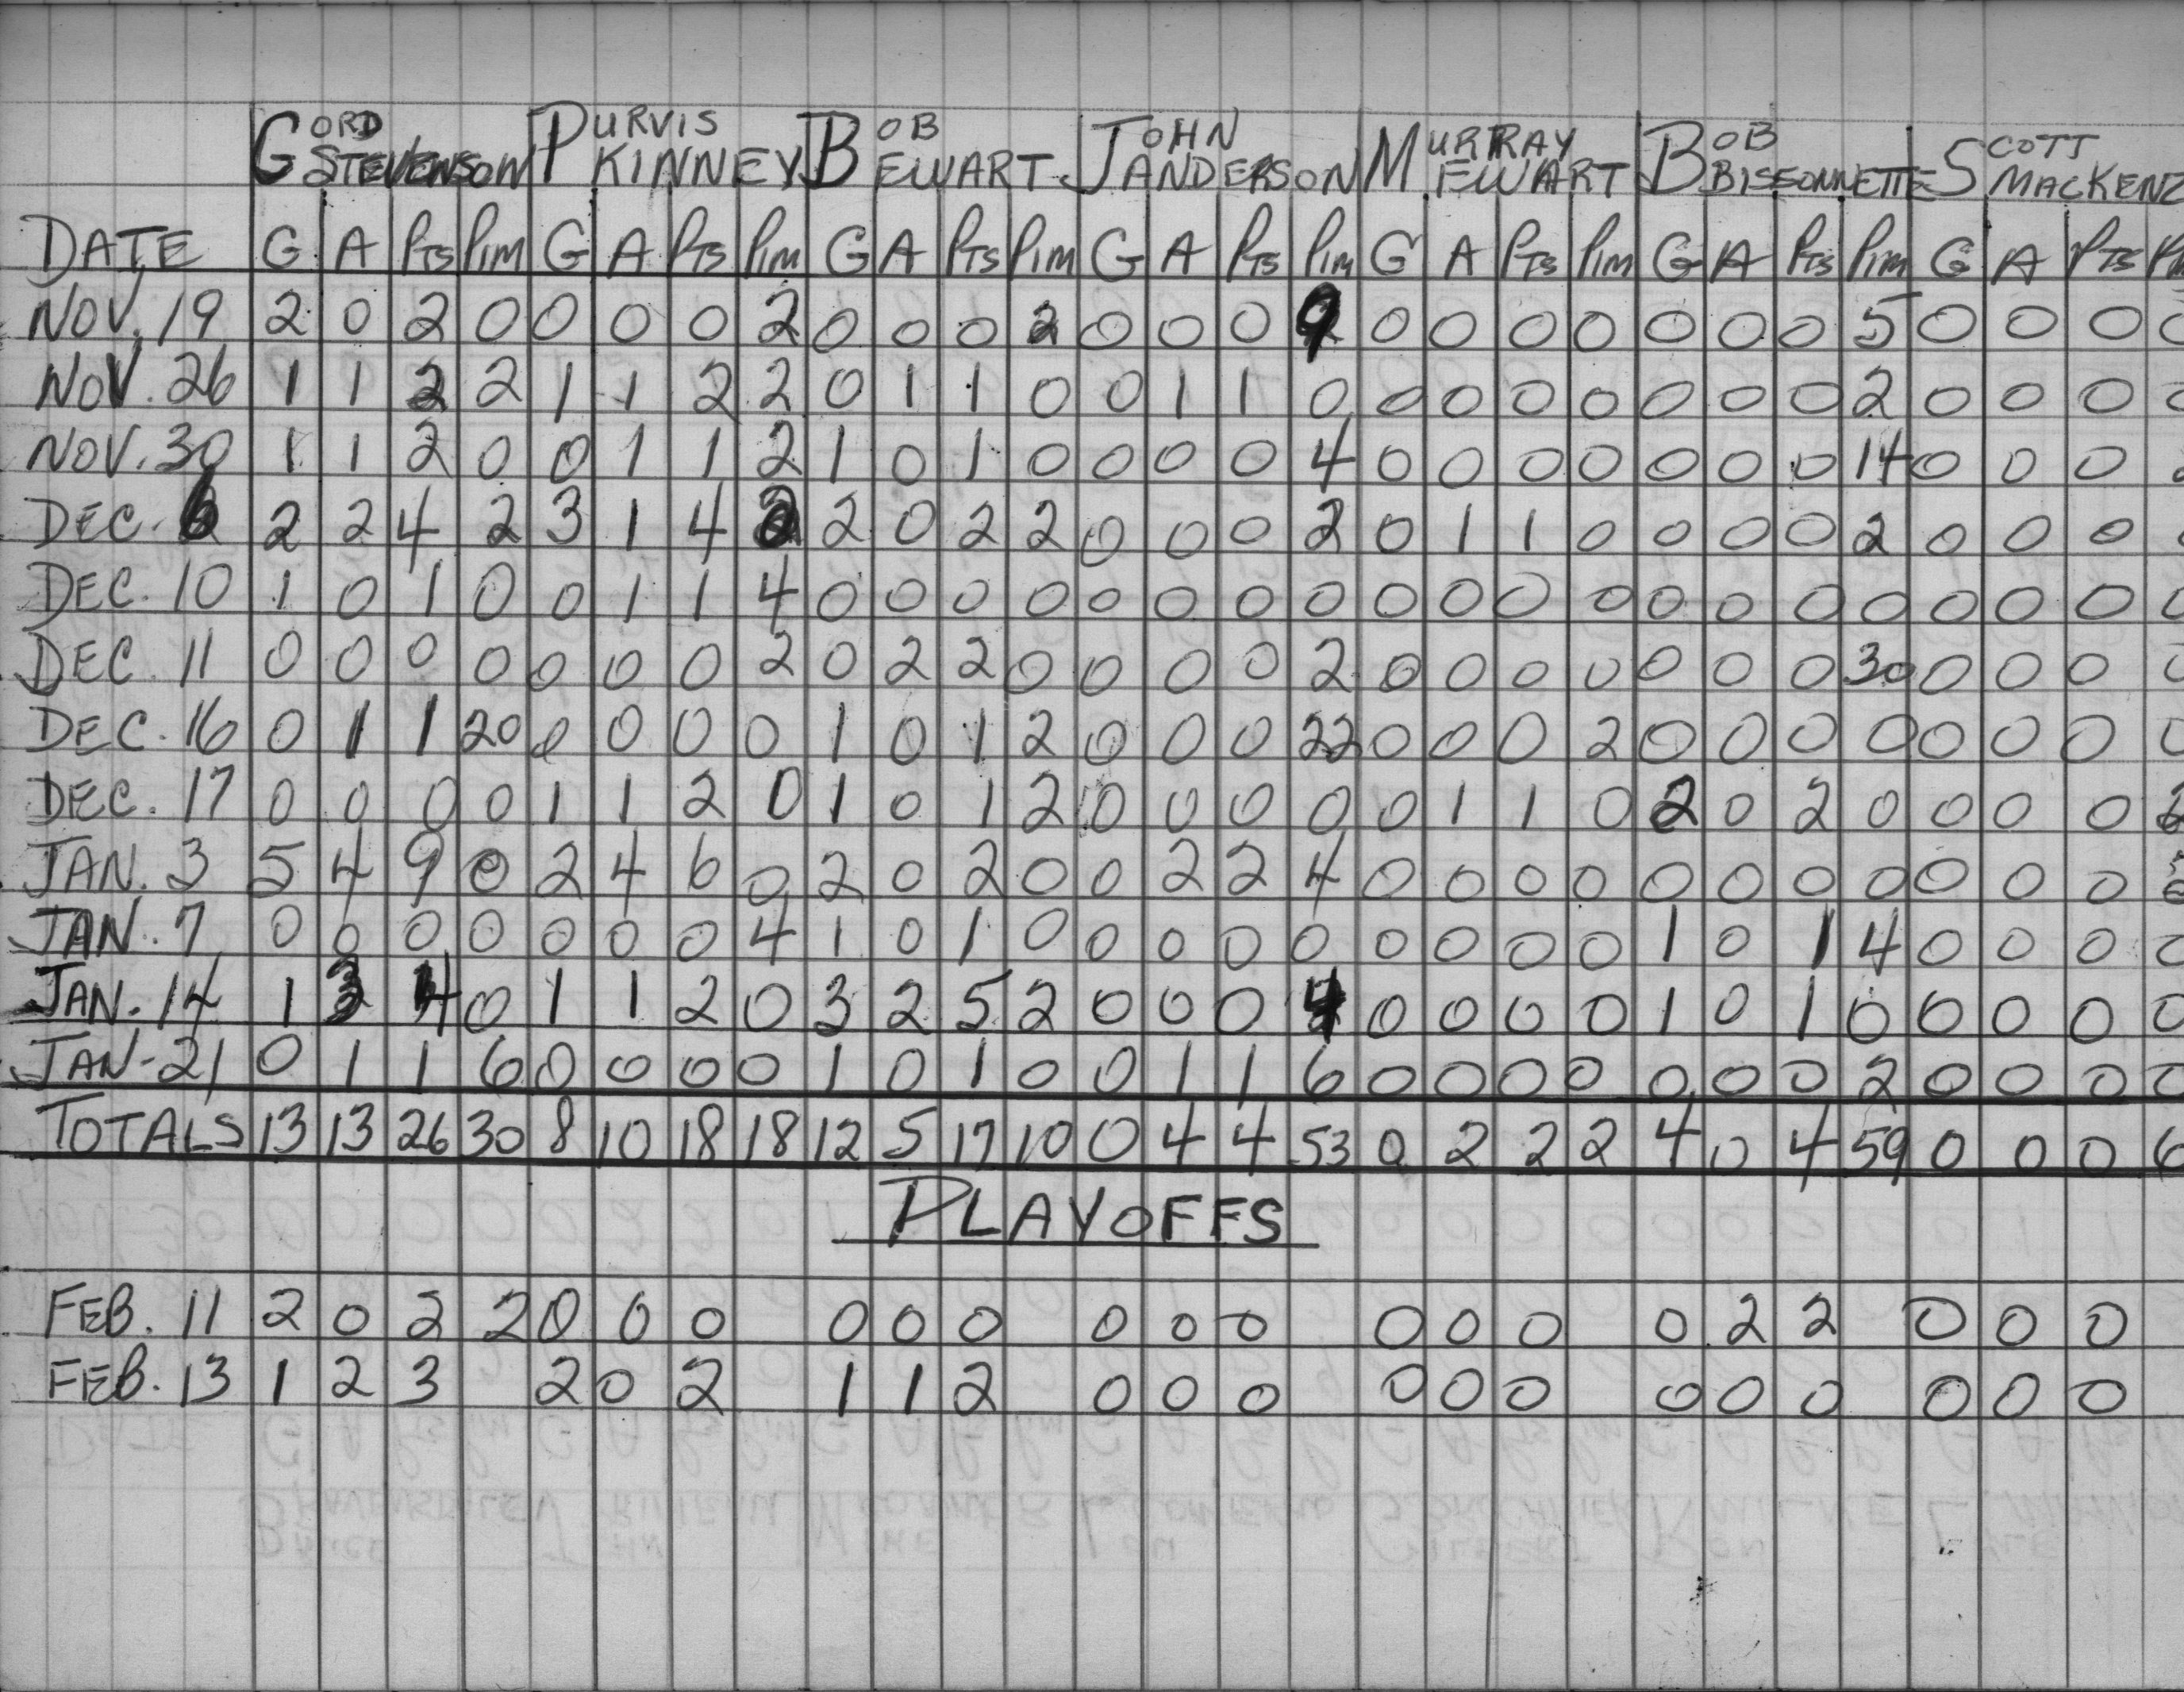 GORD STEVENSON PURVIS KINNEY BOB EWART JOHN ANDERSON MURRAY EWART BOB BISSONNETTE SCOTT MACKENZ
DATE G A PTS PIM G A PTS PIM G A PTS PIM G A PTS PIM G A PTS PIM G A PTS PIM G A PTS
NOV. 19 2 0 2 0 0 0 0 2 0 0 0 2 0 0 0 9 0 0 0 0 0 0 0 5 0 0 0 0
NOV. 26 1 1 2 2 1 1 2 2 0 1 1 0 0 1 1 0 0 0 0 0 0 0 0 2 0 0 0
NOV. 30 1 1 2 0 0 1 1 2 1 0 1 0 0 0 0 4 0 0 0 0 0 0 0 14 0 0 0
DEC. 6 2 2 4 2 3 1 4 2 2 0 2 2 0 0 0 2 0 1 1 0 0 0 0 2 0 0 0
DEC. 10 1 0 1 0 0 1 1 4 0 0 0 0 0 0 0 0 0 0 0 0 0 0 0 0 0 0 0 0
DEC. 11 0 0 0 0 0 0 0 2 0 2 2 0 0 0 0 2 0 0 0 0 0 0 0 30 0 0 0 0
DEC. 16 0 1 1 20 0 0 0 0 1 0 1 2 0 0 0 22 0 0 0 2 0 0 0 0 0 0 0 0
DEC. 17 0 0 0 0 1 1 2 0 1 0 1 2 0 0 0 0 0 1 1 0 2 0 2 0 0 0 0 2
JAN. 3 5 4 9 0 2 4 6 0 2 0 2 0 0 2 2 4 0 0 0 0 0 0 0 0 0 0 0
JAN. 7 0 0 0 0 0 0 0 4 1 0 1 0 0 0 0 0 0 0 0 0 1 0 1 4 0 0 0 0
JAN. 14 1 3 4 0 1 1 2 0 3 2 5 2 0 0 0 4 0 0 0 0 1 0 1 0 0 0 0 0
JAN-21 0 1 1 6 0 0 0 0 1 0 1 0 0 1 1 6 0 0 0 0 0 0 0 2 0 0 0 0
TOTALS 13 13 26 30 8 10 18 18 12 5 17 10 0 4 4 53 0 2 2 2 4 0 4 59 0 0 0 6
PLAYOFFS
FEB. 11 2 0 2 2 0 0 0 0 0 0 0 0 0 0 0 0 0 2 2 0 0 0
FEB. 13 1 2 3 2 0 2 1 1 2 0 0 0 0 0 0 0 0 0 0 0 0